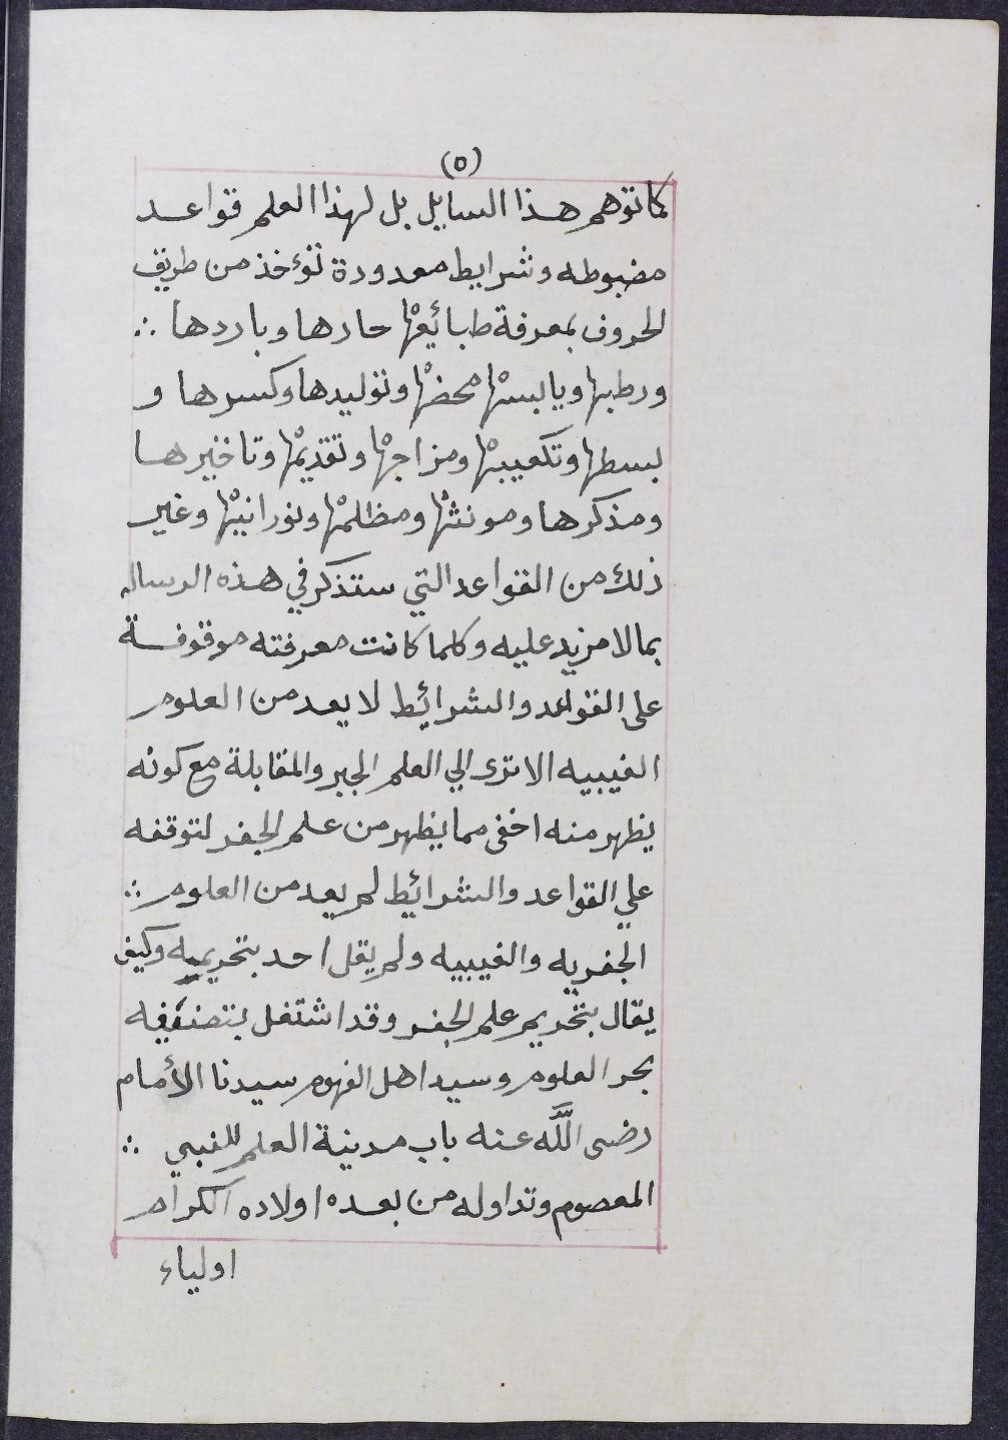 (٥)
كما توهم هذا السايل بل لهذا العلم قواعد
مضبوطه وشرايط معدودة تؤخذ من طريق
الحروف بمعرفة طبائعها حارها وباردها ∴
ورطبها ويابستها محضها وتوليدها وكسرها و
بسطها وتكعيبها ومزاجها وتقديمها وتاخيرها
ومذكرها ومونثها ومظلمها ونورانيها وغير
ذلك من القواعد التي ستذكر في هذه الرساله
بمالا مزيد عليه وكلما كانت معرفته موقوفة
على القواعد والشرائط لا يعد من العلوم
الغيبيه الا ترى الي العلم الجبر والمقابلة مع كونه
يظهر منه اخفى مما يظهر من علم الجفر لتوقفه
علي القواعد والشرائط لم يعد من العلوم ∴
الجفريه والغيبيه ولم يقل احد بتحريميه وكيف
يقال بتحريم علم الجفر وقد اشتغل بتصنيفه
بحر العلوم وسيد اهل الفهوم سيدنا الأمام
رضى اللّه عنه باب مدينة العلم للنبي ∴
المعصوم وتداوله من بعده اولاده الكرام
اولياء